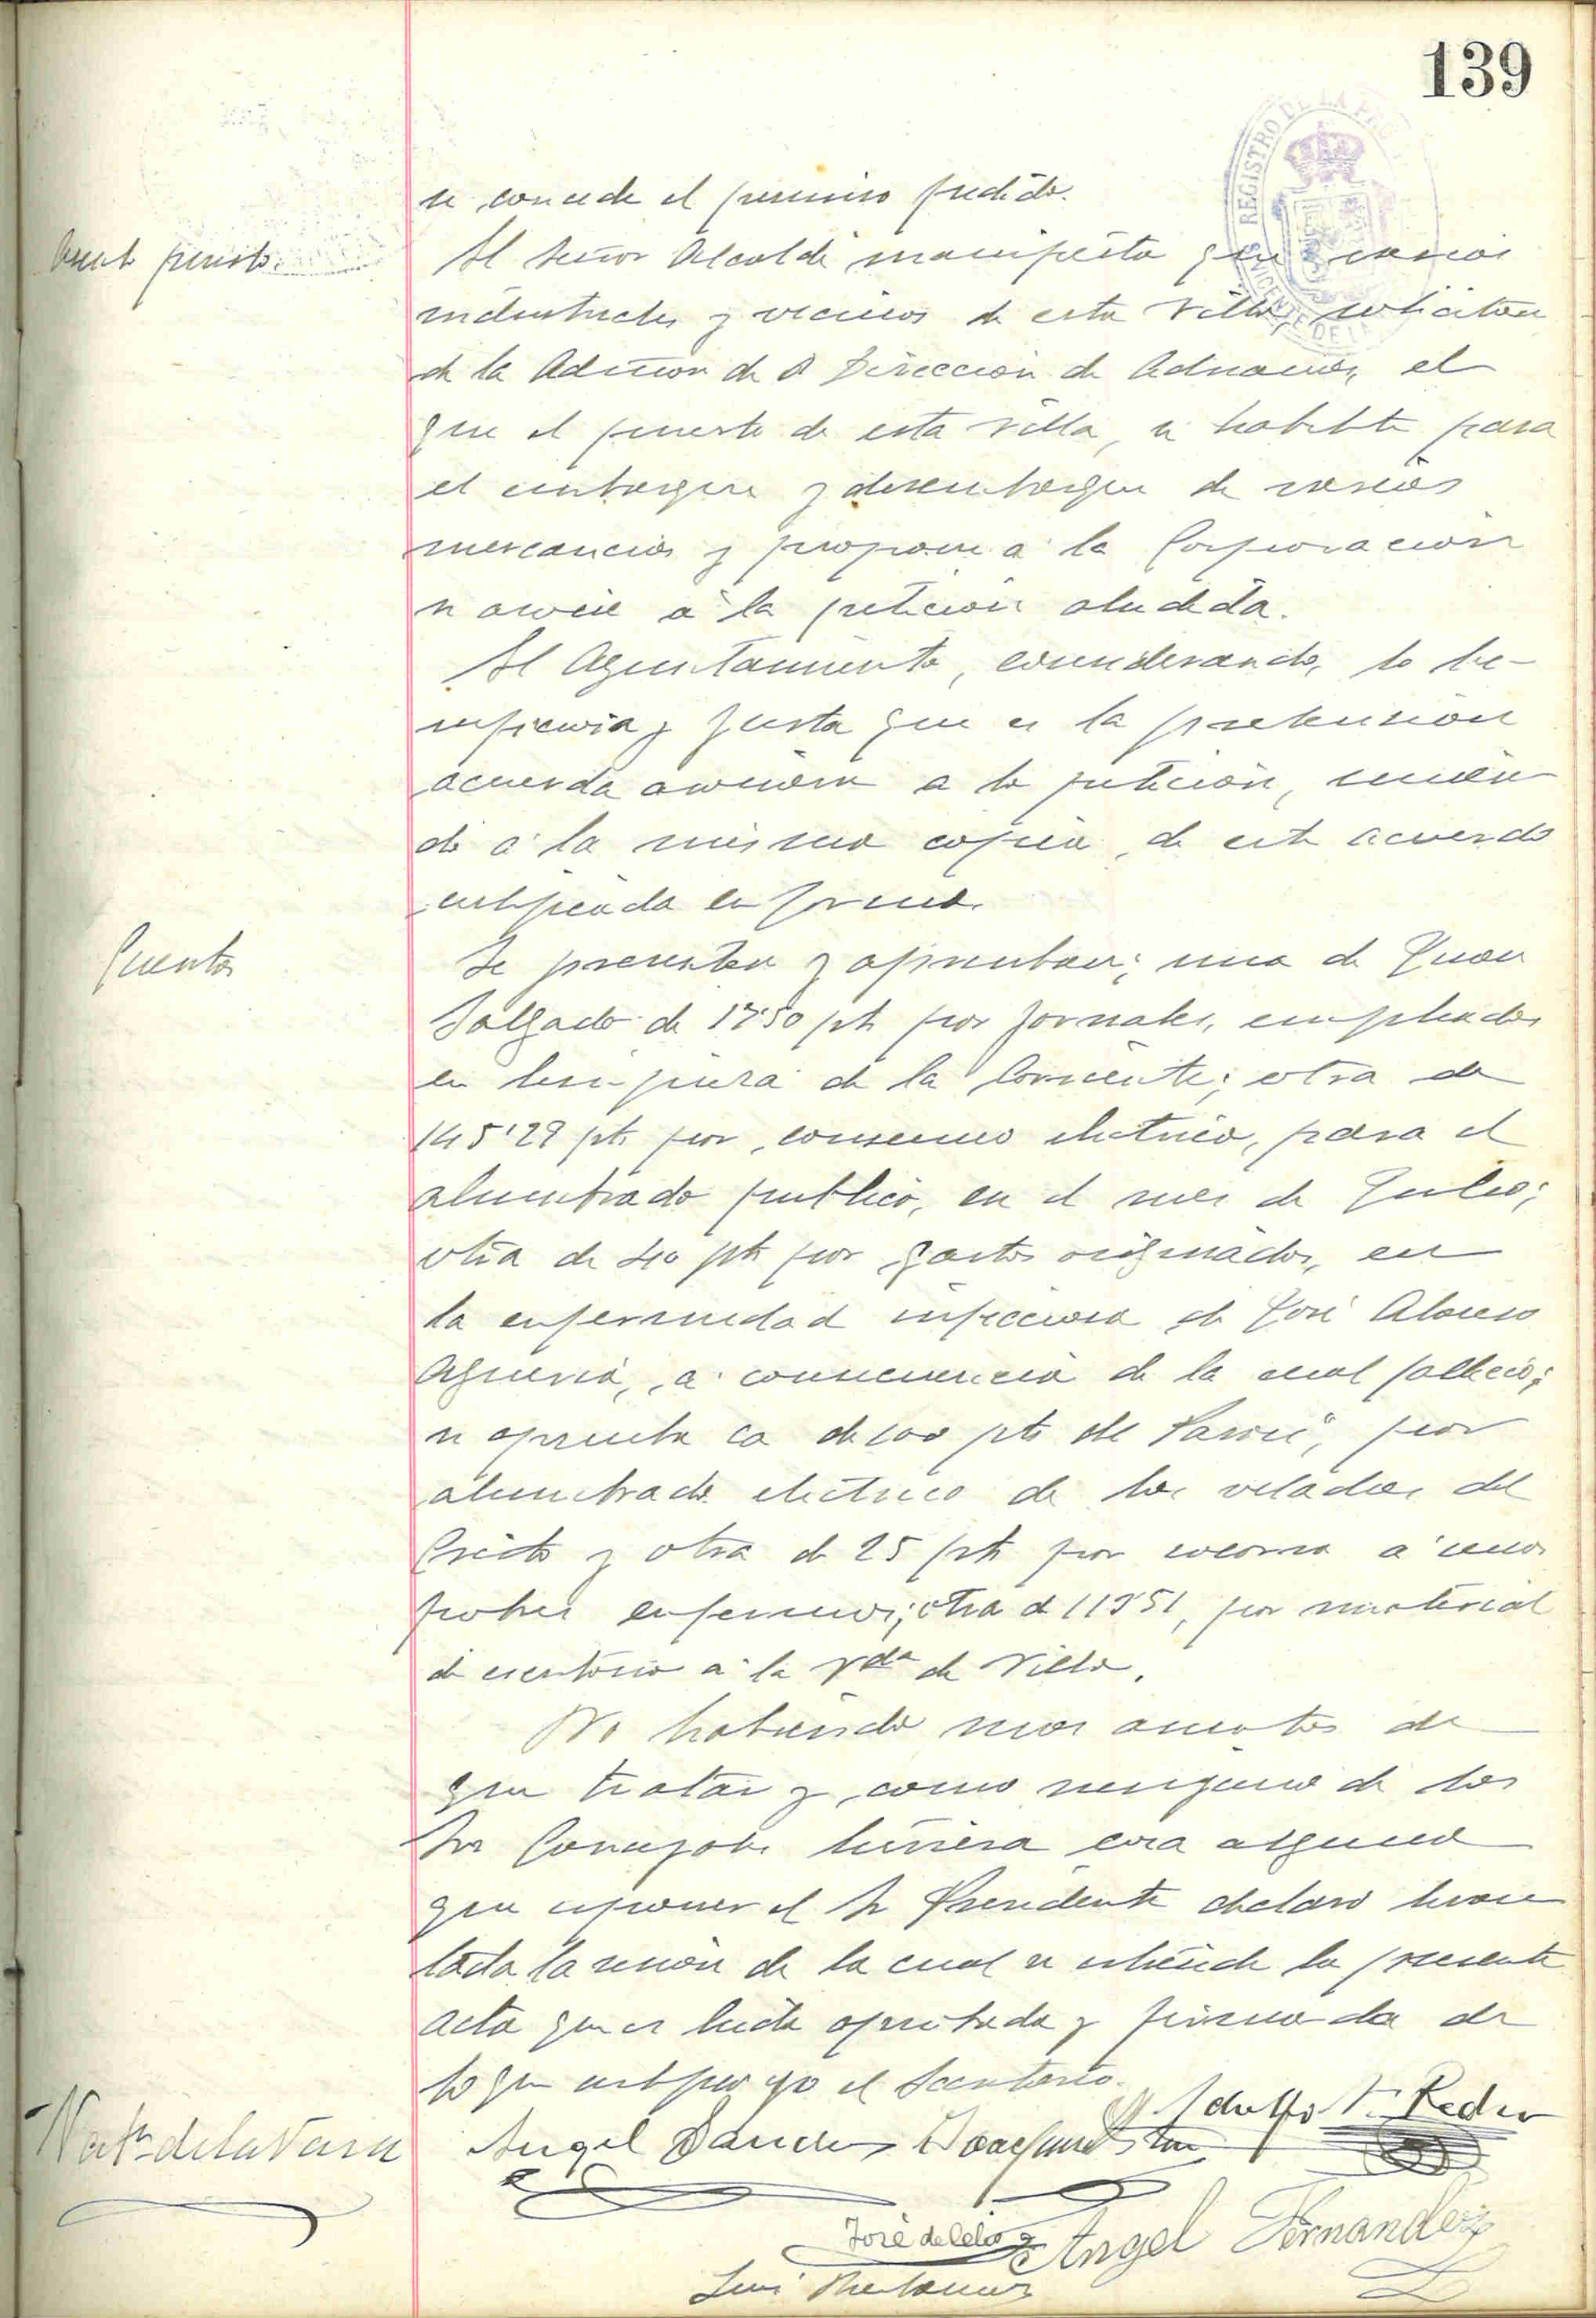 139
REGISTRO DE LA
VICENTE DE LA
se concede el permiso pedido.
puerto.
El Señor Alcalde manifiesta que varios
industriales y vecinos de esta Villa, solicitan
de la Dirección de Aduanas, el
que el puerto de esta villa, se habilite para
el embarque y desembarque de varias
mercancias y propone a la Corporación
se asocie a la petición aludida.
El Ayuntamiento, considerando, lo be-
neficiosa y justa que es la pretension
acuerda asociarse a la petición, unien
do a la misma copia, de este acuerdo
certificada en forma.
Cuentas
Se presentan y aprueban; una de Juan
Salgado de 17'50 pts por jornales, empleados
en limpieza de la Corriente; otra de
145'29 pts por consumo electrico, para el
alumbrado publico, en el mes de Julio;
otra de 40 pts por gastos originados, en
la enfermedad infecciosa de José Alonso
a consecuencia de la cual falleció;
se aprueba la de 100 pts de por
alumbrado electrico de las veladas del
Cristo y otra de 25 pts por socorro a unos
pobres enfermos; otra de 113'51, por material
de escritorio a la Vda de Villa.
No habiendo mas asuntos de
que tratar y como ninguno de los
Srs Concejales tuviera cosa alguna
que exponer el Sr Presidente declaro levan
tada la sesión de la cual se extiende la presente
acta que es leida aprobada y firmada de
lo que certifico yo el Secretario.
de la Vara
Angel Sanchez
Adolfo
José de Celis
Angel Fernandez
Luis